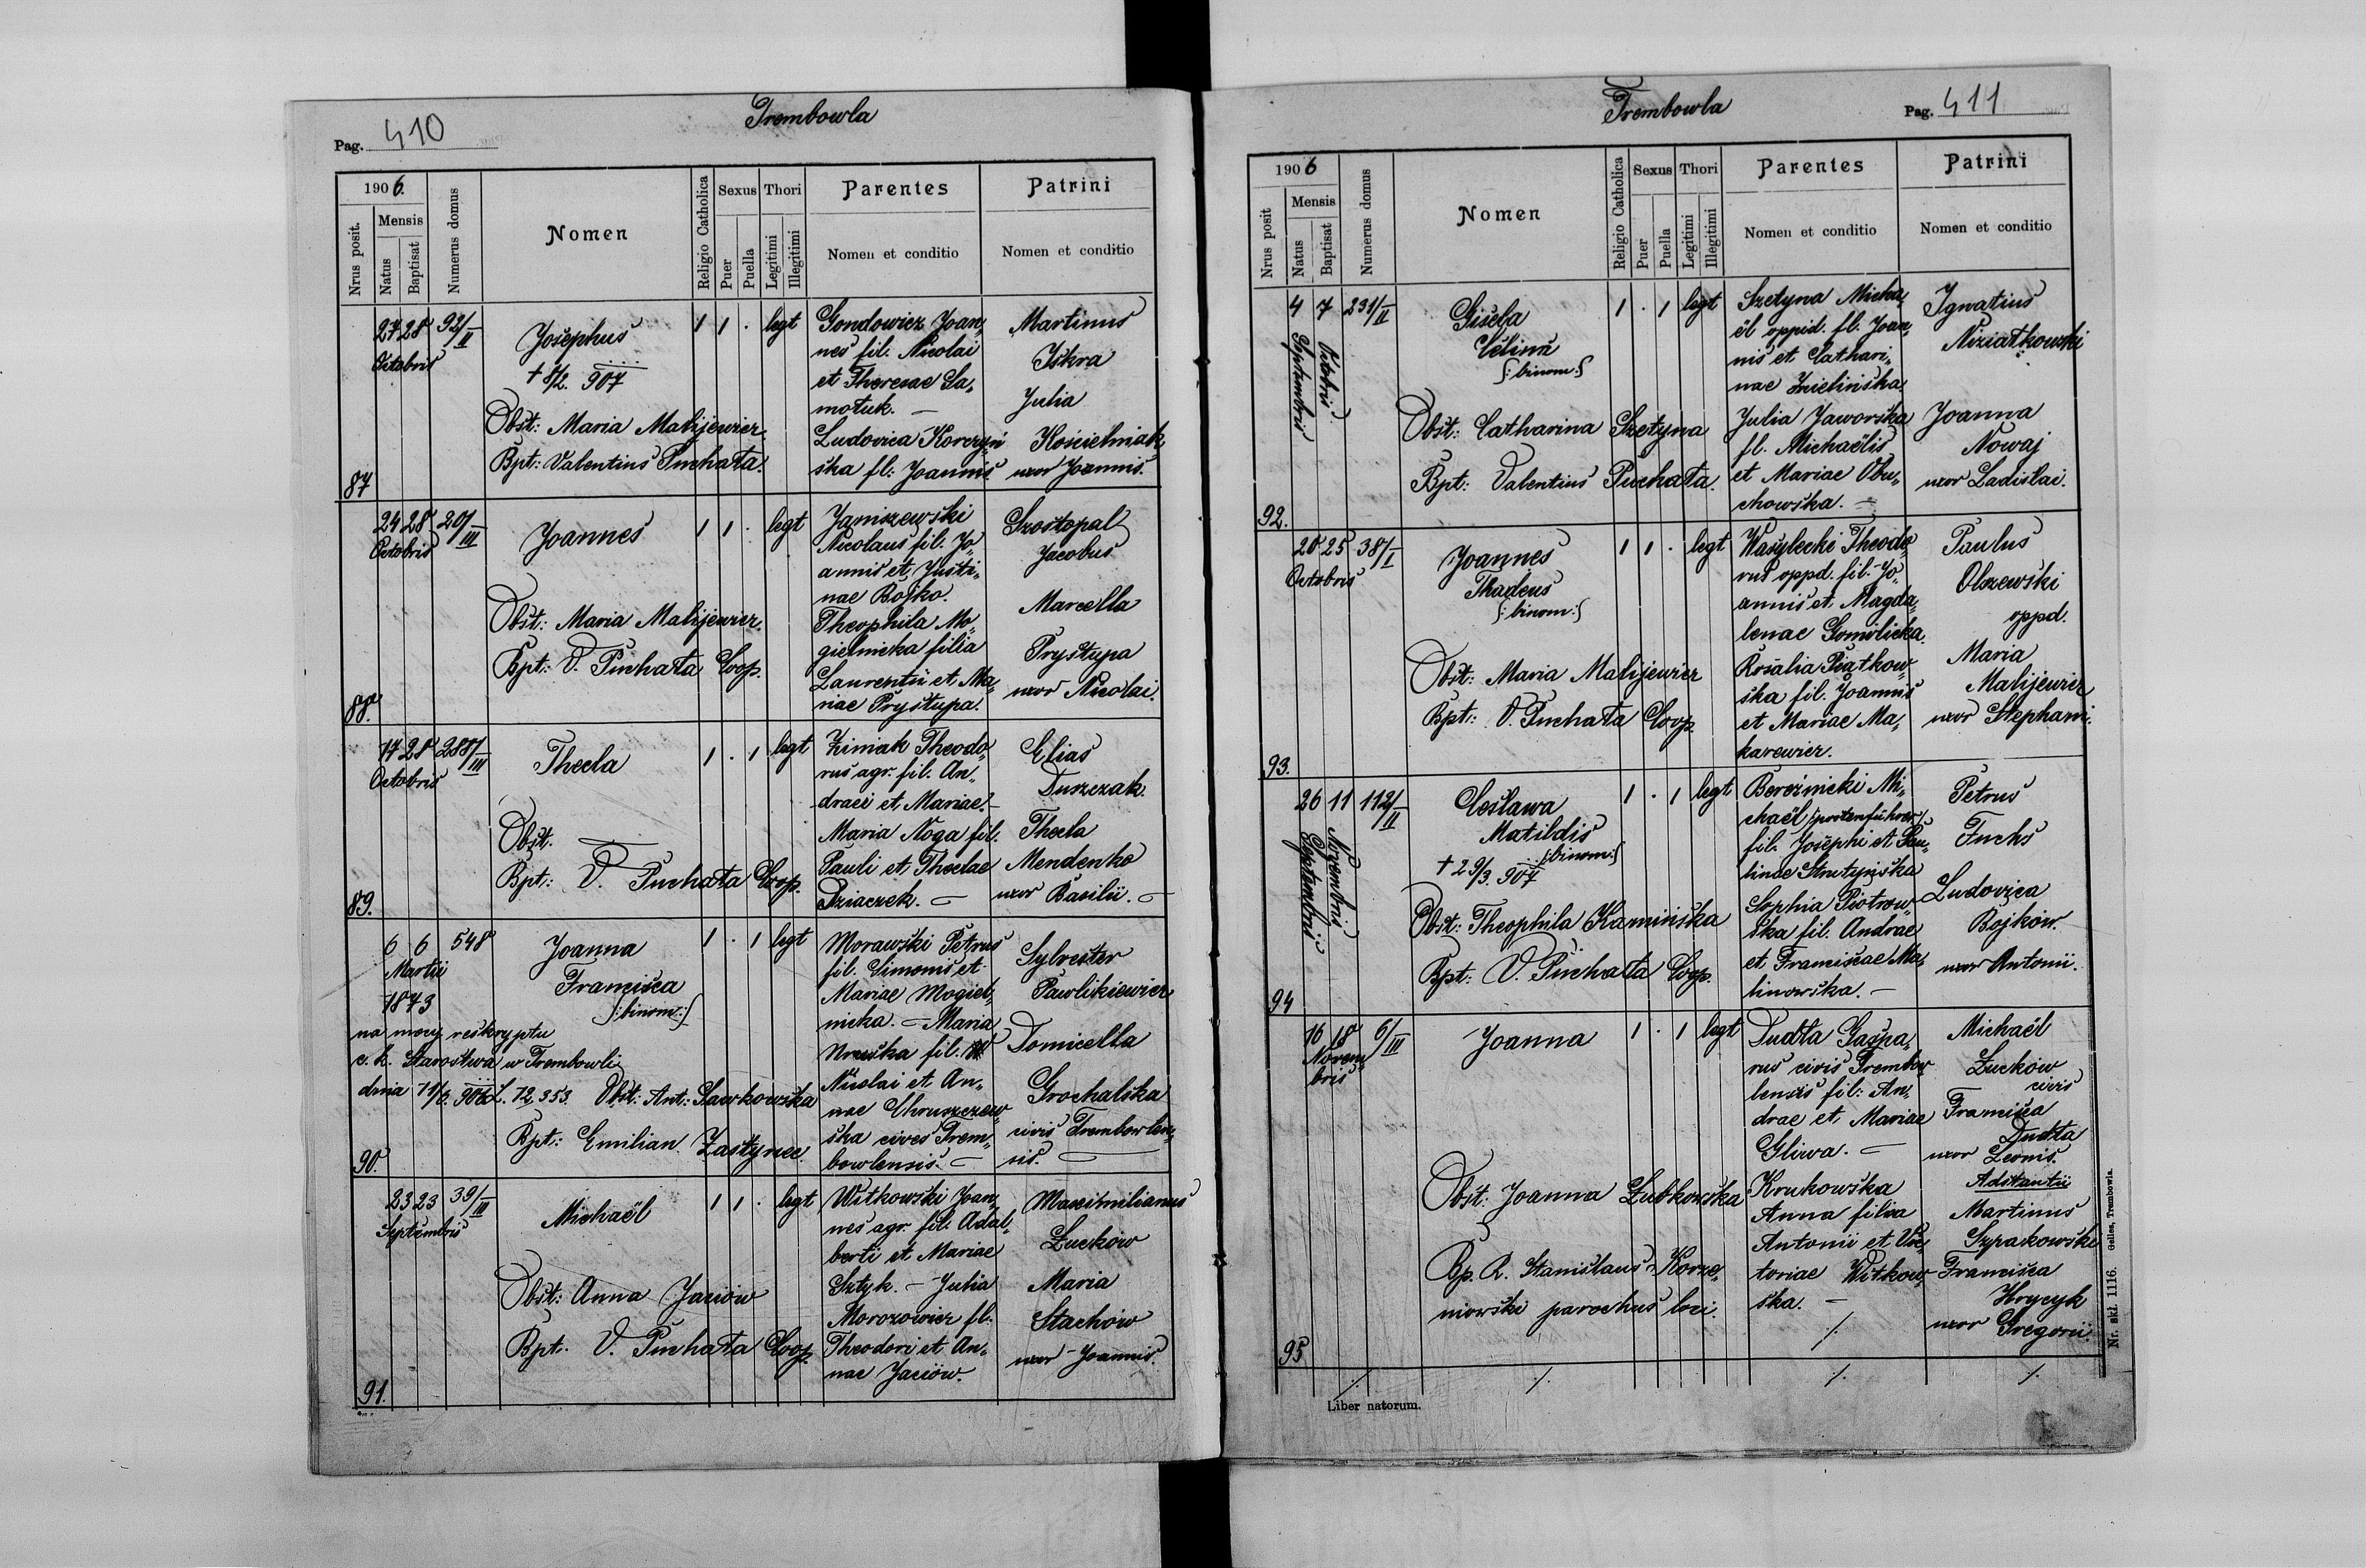 Pag. 410
Trembowla
1906.
Nrus posit.
Mensis
Natus
Baptisat
Numerus domus
Nomen
Religio Catholica
Sexus
Puer
Puella
Thori
Legitimi
Illegitimi
Parentes
Nomen et conditio
Patrini
Nomen et conditio
87
27 28 92/II
Octobris
Josephus
† 8/2. 907
Obst: Maria Malijewicz.
Bpt: Valentinus Puchała.
1 1 . legt
Gondowicz Joan„
nes fil. Nicolai
et Theresae Sa„
motuk. —
Ludovica Korczyń
ska fl: Joannis
Martinus
Iskra
Julia
Kościelniak
uxor Joannis.
88.
24 28 20/III
Octobris
Joannes
Obst: Maria Malijewicz.
Bpt: V. Puchała Coop.
1 1 . legt
Janiszewski
Nicolaus fil. Jo„
annis et Justi„
nae Bojko.
Theophila Mo„
gielnicka filia
Laurentii et Ma„
nae Prystupa.
Szostopal
Jacobus
Marcella
Prystupa
uxor Nicolai.
89.
17 28 288/III
Octobris
Thecla
Obst. —
Bpt: V. Puchała Coop.
1 . 1 legt
Zimiak Theodo„
rus agr. fil. An„
draei et Mariae. —
Maria Noga fil.
Pauli et Theclae
Dziaczek. —
Elias
Duszczak.
Thecla
Mendenko
uxor Basilii. —
90.
6 6 548
Martii
1873
Joanna
Francisca
/:binom:/
na mocy reskryptu
c. k. Starostwa w Trembowli
dnia 11/6. 906 L. 12,353. Obst: Ant: Sawkowska
Bpt: Emilian. Zastyrec
1 . 1 legt
Morawski Petrus
fil. Simonis et
Mariae Mogiel„
nicka. — Maria
fil.
Nicolai et An„
nae Chruszczew„
ska cives Trem„
bowlensis. —
Sylvester
Pawlikiewicz
Domicella
Grochalska
civis Trembowlen„
sis. —
91.
23 23 39/III
Septembris
Michaël
Obst: Anna Jaciów
Bpt. V. Puchała Coop.
1 1 . legt
Witkowski Joan„
nes agr. fil: Adal„
berti et Mariae
Sztyk. — Julia
Morozowicz fl.
Theodori et An„
nae Jaciów.
Maximilianus
Łucków
Maria
Stachów
uxor Joannis.
Trembowla
Pag. 411
1906
Nrus posit
Mensis
Natus
Baptisat
Numerus domus
Nomen
Religio Catholica
Sexus
Puer
Puella
Thori
Legitimi
Illegitimi
Parentes
Nomen et conditio
Patrini
Nomen et conditio
92.
4 7 231/II
Septembris
Octobris
Gisela
Celina
/:binom:/
Obst: Catharina Szetyna
Bpt: Valentius Puchała.
1 . 1 legt
Szetyna Micha„
ël oppid. fl. Joan„
nis et Cathari„
nae Zielińska.
Julia Jaworska
fl. Michaëlis
et Mariae Obu„
chowska. —
Ignatius
Niziałkowski
Joanna
Nowaj
uxor Ladislai.
93.
20 25 38/I
Octobris
Joannes
Thadeus
/:binom:/
Obst: Maria Malijewicz
Bpt: V. Puchała Coop.
1 1 . legt
Wasylecki Theodo„
rus oppd. fil. Jo„
annis et Magda„
lenae Gomólicka.
Rosalia Piątkow„
ska fil. Joannis
et Mariae Ma„
karewicz.
Paulus
Olszewski
oppd.
Maria
Malijewicz
uxor Stephani.
94
26 11 112/II
Septembris
Novembris
Cesława
Matildis
/:binom:/
† 29/3. 907
Obst: Theophila Kamińska
Bpt: V. Puchała Coop.
1 . 1 legt
Bereźnicki Mi„
chaël /postenführer/
fil. Josephi et Pau„
linae Strutyńska
Sophia Piotrow„
ska fil. Andrae
et Franciscae Ma„
linowska. —
Petrus
Fuchs
Ludovica
Bojków.
uxor Antonii.
95
16 18 6/III
Novem
bris
Joanna
Obst. Joanna Łubkowska
Bp. R. Stanislaus Korze„
niowski parochus loci.
1 . 1 legt
Dudła Gaspa„
rus civis Trembow
lensis fil: An„
drae et Mariae
Gliwa. —
Krukowska
Anna filia
Antonii et Vic„
toriae Witkow„
ska. —
Michaël
Łucków
civis
Francisca
Dudła
uxor Leonis.
Adstantii
Martinus
Szpakowski
Francisca
Hrycyk
uxor Gregorii.
Liber natorum.
Nr. skł. 1116. Gelles, Trembowla.